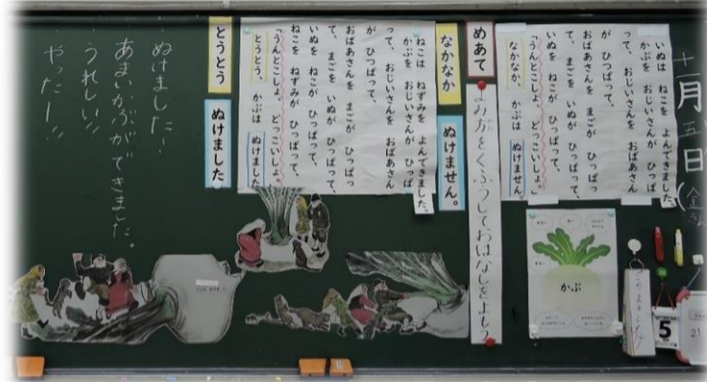 十一月五日(金
いぬは ねこを よんできました。
かぶを おじいさんが ひっぱ
って、おじいさんを おばあさん
が ひっぱって、
おばあさんを まごが ひっぱっ
て、まごを いぬが ひっぱって、
いぬを ねこが ひっぱって、
「うんとこしょ、どっこいしょ。」
なかなか、かぶは ぬけません。
かぶ
5
めあて
よみ方をくふうしておはなしをよもう
なかなか
ぬけません。
ねこは ねずみを よんできました。
かぶを おじいさんが ひっぱ
って、おじいさんを おばあさん
が ひっぱって、
おばあさんを まごが ひっぱっ
て、まごを いぬが ひっぱって、
いぬを ねこが ひっぱって、
ねこを ねずみが ひっぱって、
「うんとこしょ、どっこいしょ。」
とうとう、かぶは ぬけました
とうとう
ぬけました
ぬけました!
あまいかぶができました。
うれしい!!
やったー!!